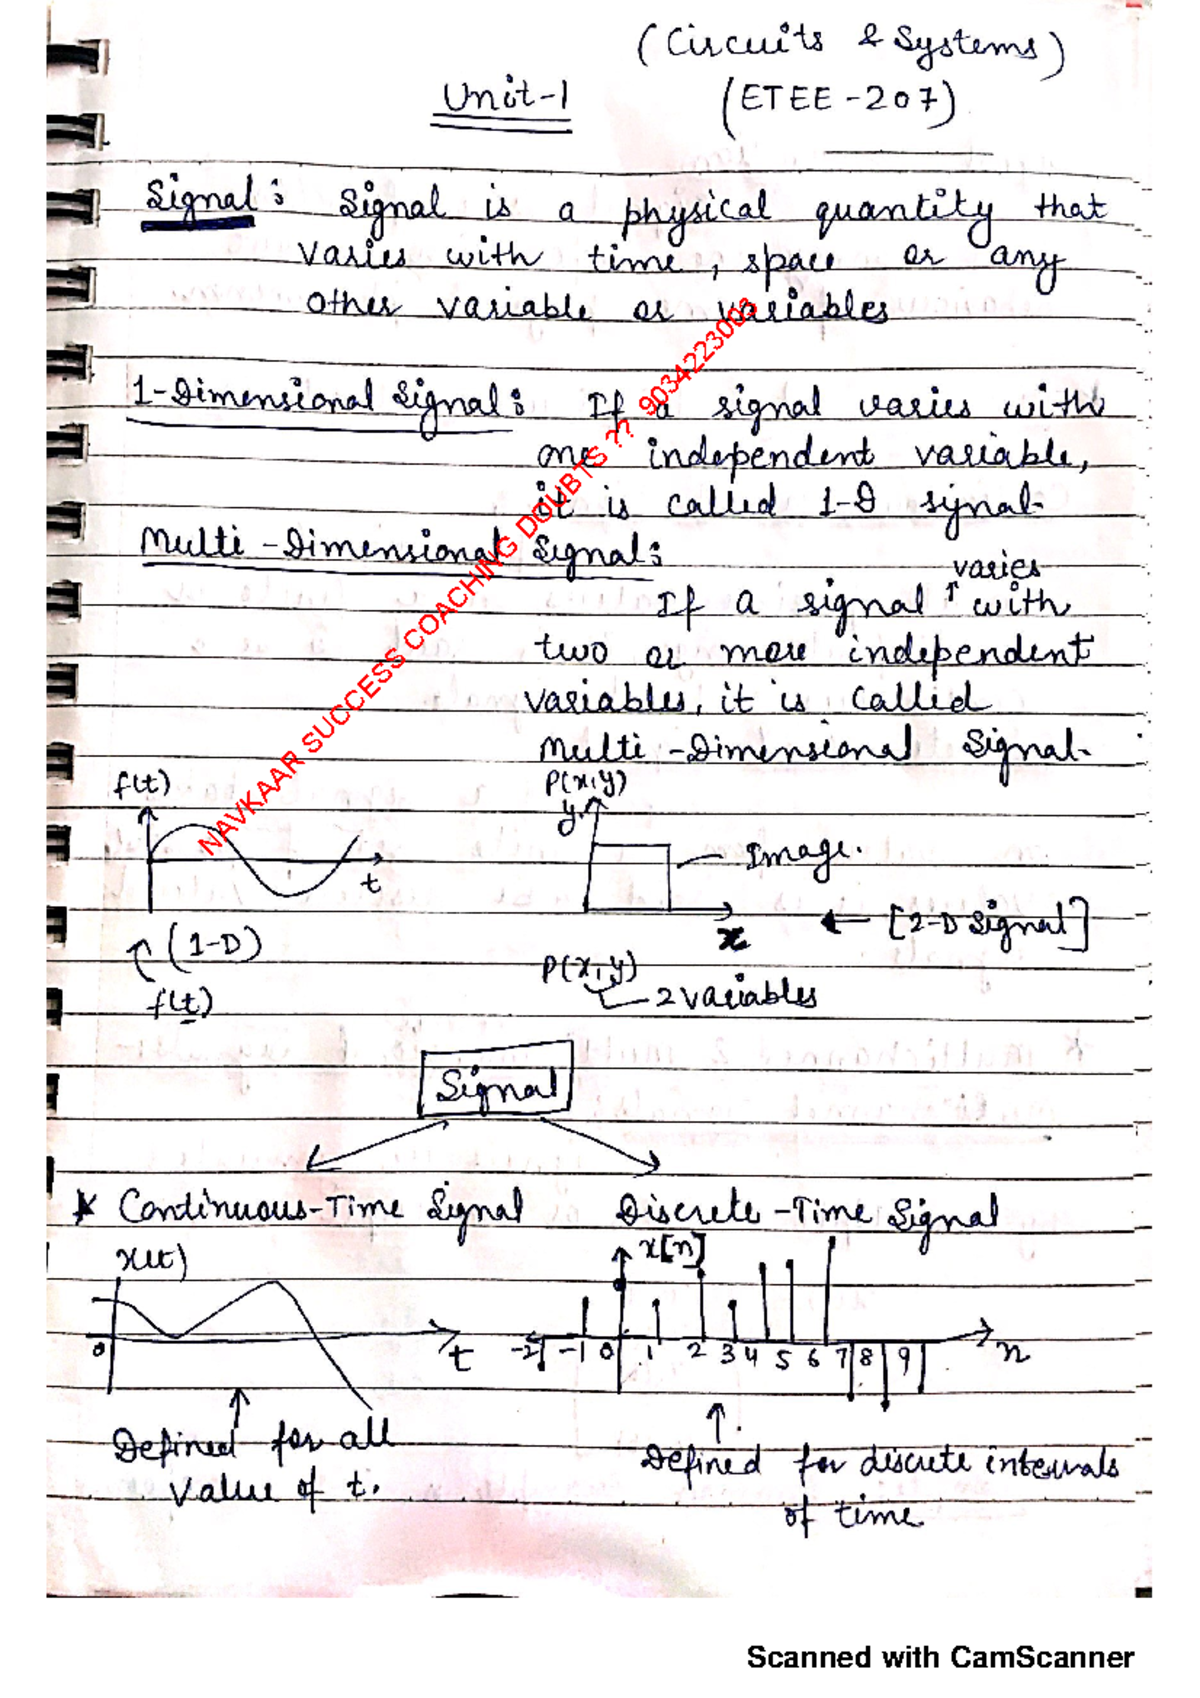 (Circuits & Systems)
Unit-1 (ETEE-207)
Signal: Signal is a physical quantity that
varies with time, space or any
other variable or variables
1-Dimensional Signal: If a signal varies with
one independent variable,
it is called 1-D signal.
Multi-Dimensional Signal:
varies
If a signal ↑ with
two or more independent
variables, it is called
Multi-Dimensional Signal.
f(t) P(x,y)
y
Image.
t
x ← [2-D Signal]
(1-D)
P(x,y)
f(t) 2 variables
Signal
* Continuous-Time Signal Discrete-Time Signal
x(t) x[n]
0 t -2 -1 0 1 2 3 4 5 6 7 8 9 n
Defined for all
value of t.
Defined for discrete intervals
of time
NAVKAAR SUCCESS COACHING DOUBTS ?? 9034223003
Scanned with CamScanner